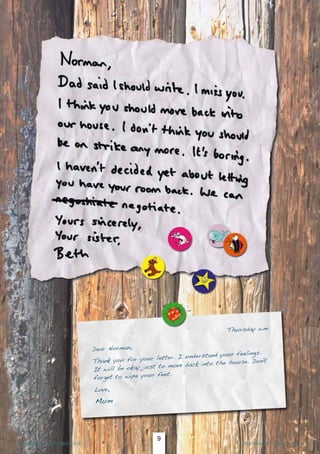 Norman,
Dad said I should write. I miss you.
I think you should move back into
our house. I don't think you should
be on strike any more. It's boring.
I haven't decided yet about letting
you have your room back. We can
negoshiate negotiate.
Yours sincerely,
Your sister,
Beth
Thursday a.m.
Dear Norman,
Thank you for your letter. I understand your feelings.
It will be okay just to move back into the house. Don't
forget to wipe your feet.
Love,
Mum
9